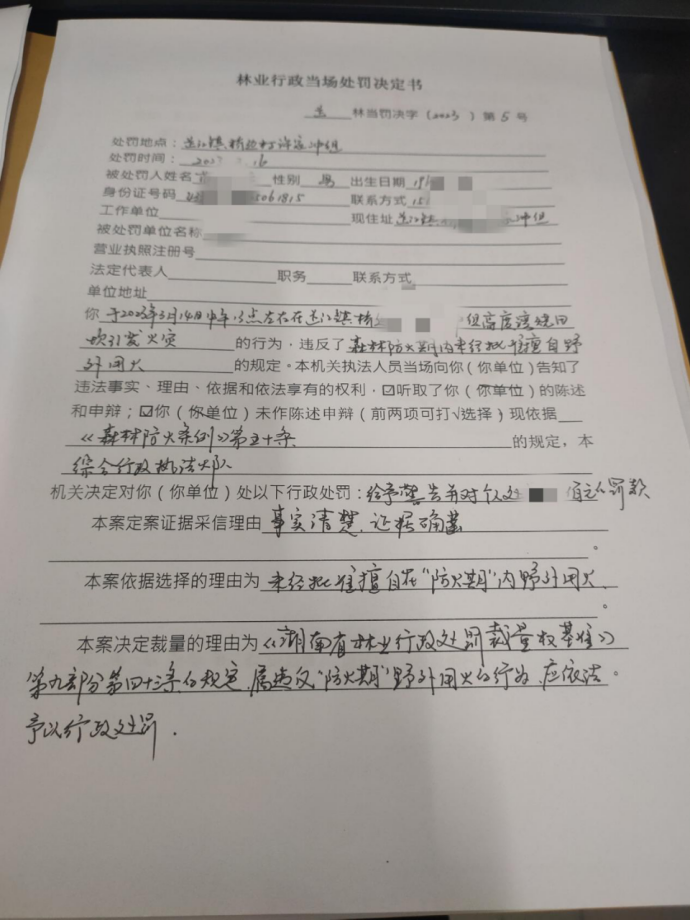 林业行政当场处罚决定书
林当罚决字（2023）第5号
处罚地点：
处罚时间：2023 16
被处罚人姓名 性别 男 出生日期 19
身份证号码 5061815 联系方式 15
工作单位 现住址 冲组
被处罚单位名称
营业执照注册号
法定代表人 职务 联系方式
单位地址
你于2023年3月14日中午13点左右在
引发火灾的行为，违反了森林防火期内未经批准擅自野
外用火的规定。本机关执法人员当场向你（你单位）告知了
违法事实、理由、依据和依法享有的权利，☑听取了你（你单位）的陈述
和申辩；☑你（你单位）未作陈述申辩（前两项可打√选择）现依据
《森林防火条例》第五十条 的规定，本
综合行政执法大队
机关决定对你（你单位）处以下行政处罚：给予警告并对个人处 佰元的罚款
本案定案证据采信理由事实清楚，证据确凿
。
本案依据选择的理由为未经批准擅自在“防火期”内野外用火
。
本案决定裁量的理由为《湖南省林业行政处罚裁量权基准》
第九部分第四十三条的规定，属违反“防火期”野外用火的行为，应依法。
予以行政处罚.